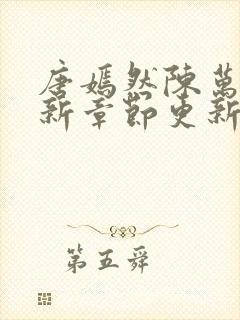 唐嫣然陳萬
新章節更新
第五舜